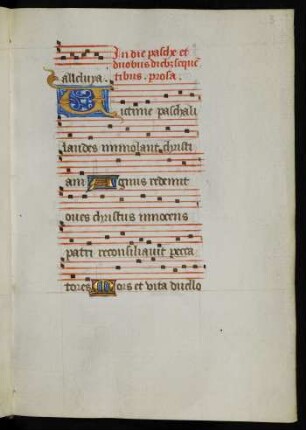 In die pasche et
duobus dieb; seque
alleluya. tibus. prosa.
Victime paschali
laudes immolant christi
ani Agnus redemit
oves christus innocens
patri reconsiliavit pecca
tores Mors et vita duello